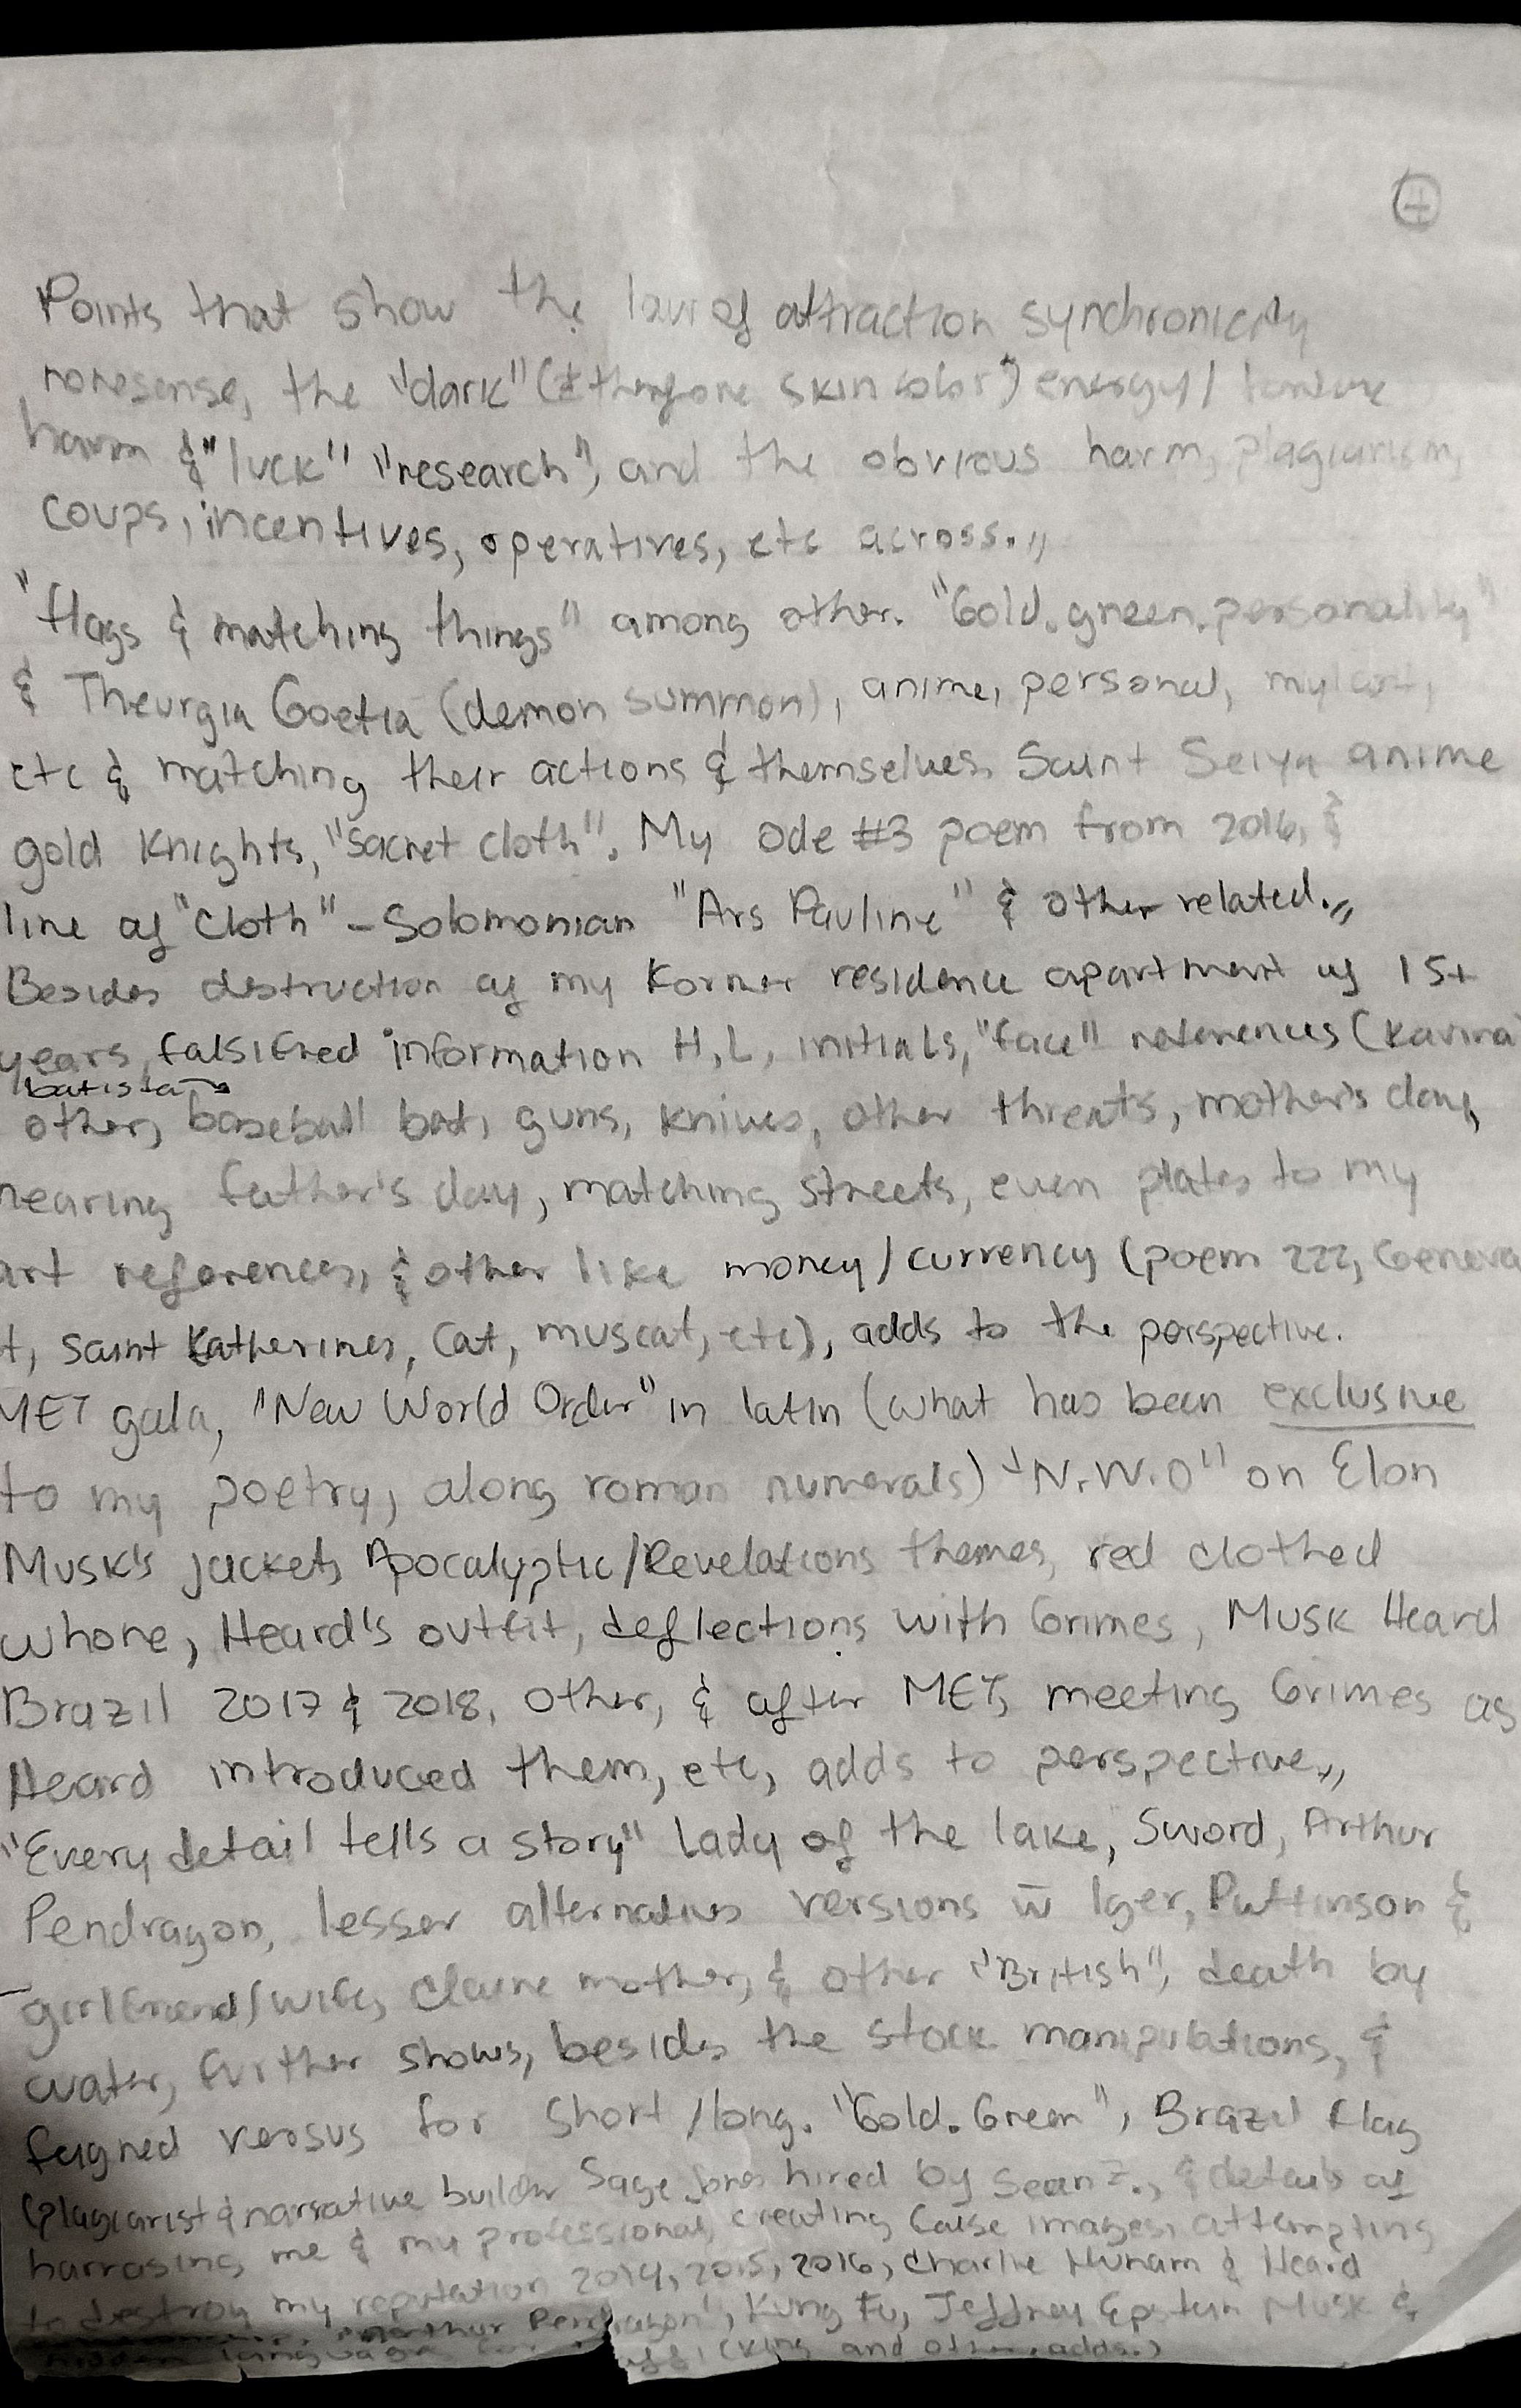 +
Points that show the law of attraction synchronicity
nonesense, the "dark" (& therefore skin color") energy/
harm & "luck" "research", and the obvious harm, plagiarism,
coups, incentives, operatives, etc across.,,
"flags & matching things" among other. "Gold.green.personality"
& Theurgia Goetia (demon summon), anime, personal, my art,
etc & matching their actions & themselves. Saint Seiya anime
gold knights, "sacret cloth". My ode #3 poem from 2016, &
line of "cloth" - Solomonian "Ars Pauline" & other related.,,
Besides destruction of my former residence apartment of 15+
years, falsified information H, L, initials, "face" references (Kavina
batista
other, baseball bat, guns, knives, other threats, mother's day,
nearing father's day, matching streets, even plates to my
art references, & other like money/currency (poem 222, Geneva
t, Saint Katherines, Cat, muscat, etc), adds to the perspective.
MET gala, "New World Order" in latin (what has been exclusive
to my poetry, along roman numerals) "N.W.O" on Elon
Musk's jacket, Apocalyptic/Revelations themes, red clothed
whore, Heard's outfit, deflections with Grimes, Musk Heard
Brazil 2017 & 2018, other, & after MET, meeting Grimes as
Heard introduced them, etc, adds to perspective.,,
"Every detail tells a story" Lady of the lake, Sword, Arthur
Pendragon, lesser alternatives versions w Iger, Pattinson &
girlfriend/wife, Claire mother, & other "British", death by
water, further shows, besides the stock manipulations, &
feigned versus for short/long. "Gold.Green", Brazil flag
(plagiarist & narrative builder Sage Jones hired by Sean Z., & details of
harrasing me & my professional, creating false images, attempting
to destroy my reputation 2014, 2015, 2016, Charlie Hunam & Heard
Arthur Pendragon", Kung Fu, Jeffrey Epstein Musk &
hidden language (King and other, adds.)